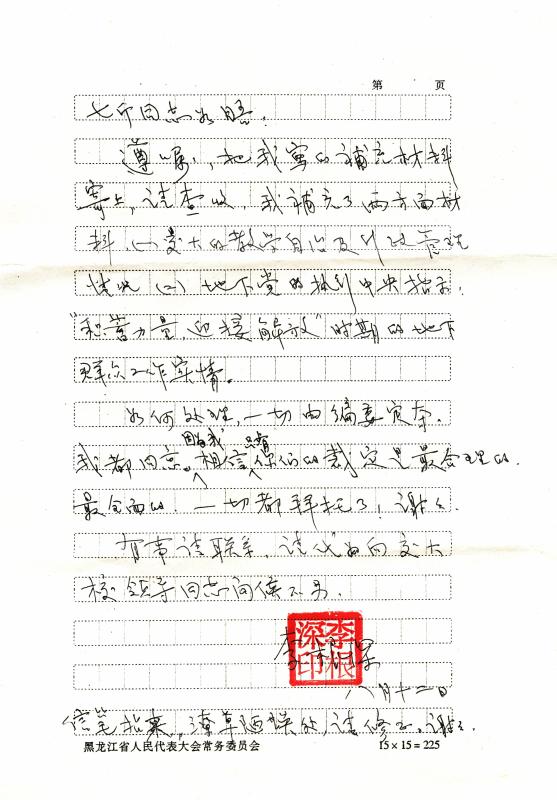 第 页
同志如晤：
遵嘱，把我写的补充材料
寄上，请查收，我补充了两方面材
料，(一)交大的教学自治及行政管理
情况(二)地下党的执行中央指示，
"积蓄力量，迎接解放"时期的地下
群众工作实情。
如何处理，一切由编委定夺。
我都同意。因为我相信你们的裁定是最合理的，
最全面的。一切都拜托了，谢谢
有事请联系，请代向交大
校领导同志问候不另。
李根深印
李根深
八月十二日
信笔拈来，潦草处，请修正，谢谢
黑龙江省人民代表大会常务委员会 15×15=225